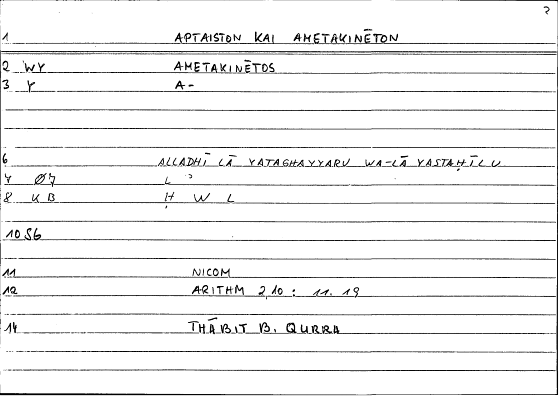 ?
1 APTAISTON KAI AMETAKINĒTON
2 WY AMETAKINĒTOS
3 Y A-
6 ALLADHĪ LĀ YATAGHAYYARU WA-LĀ YASTAḤĪLU
7 Ø7 L ʾ
8 KB Ḥ W L
10 S6
11 NICOM
12 ARITHM 2,10 : 11. 19
14 THĀBIT B. QURRA